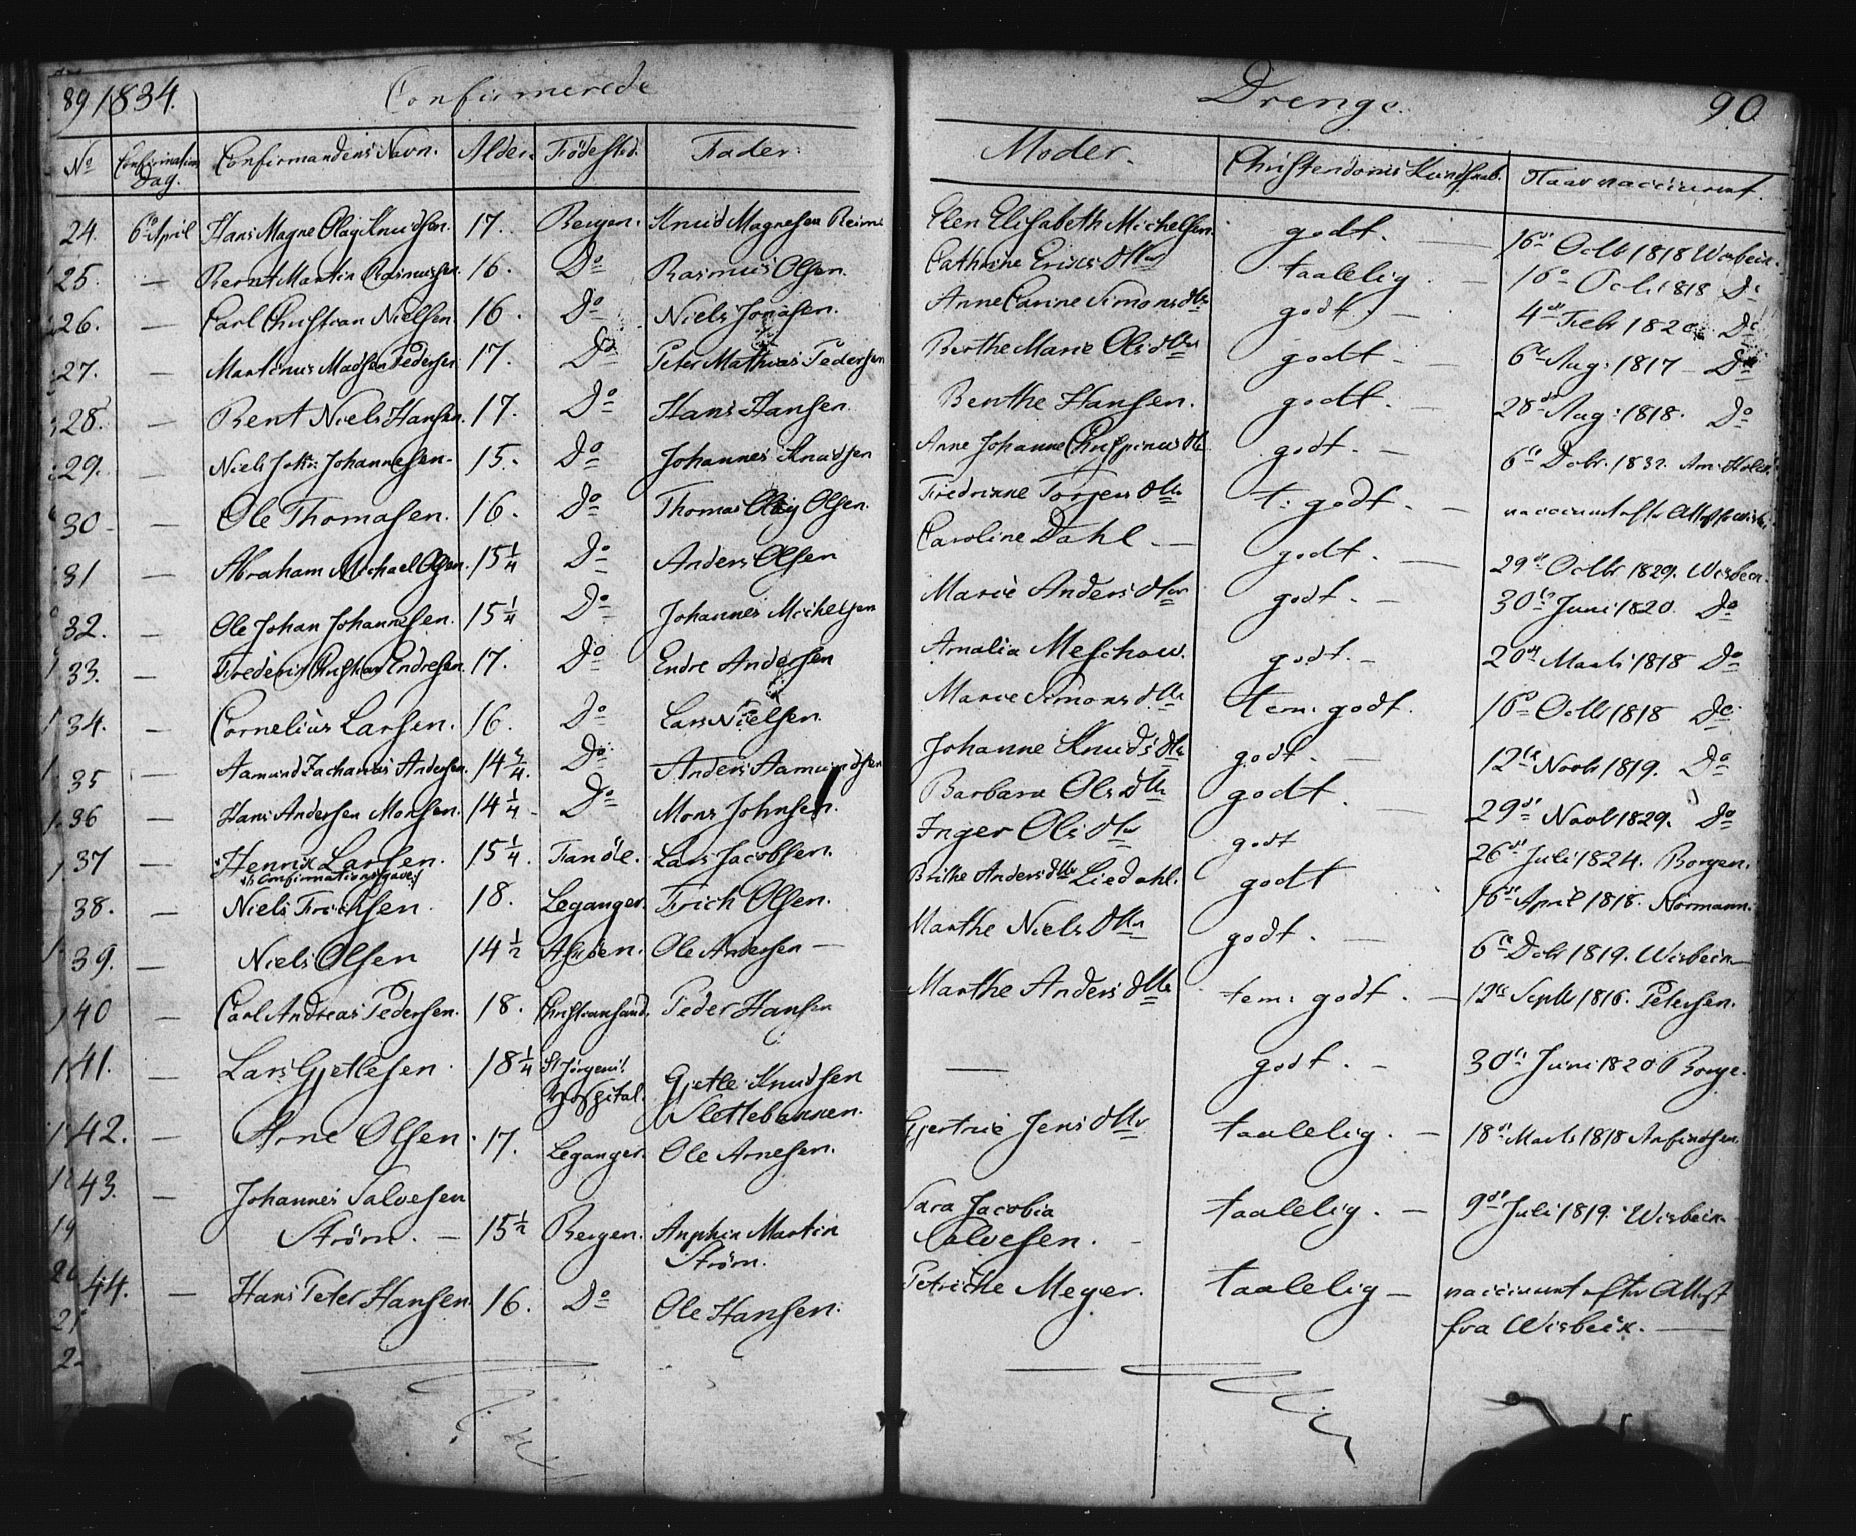 89 1834. Confirmerede Drenge. 90
No Confirmations Dag. Confirmandens Navn. Alder. Födested. Fader. Moder. Christendoms Kundskab. Naar vaccineret.
24. 6te April Hans Magne Olaij Knudsen. 17. Bergen. Knud Magnesen Elen Elisabeth Michelsen. godt. — 16de Octb 1818 Wisbeck.
25. — Bernt Martin Rasmussen. 16. Do Rasmus Olsen. Cathrine Ericsdttr taalelig. — 16de Octb 1818 Do
26. — Carl Christian Nielsen. 16. Do Niels Jonasen. Anne Carine Simonsdttr godt. — 4de Febr 1820. Do
27. — Martinus Madsen Pedersen 17. Do Peter Mathias Pedersen Berthe Marie Olsdttr godt — 6te Aug: 1817 — Do
28. — Bent Niels Hansen. 17. Do Hans Hansen. Benthe Hansen. godt. — 28de Aug: 1818. Do
29. — Niels Johs: Johannesen. 15. Do Johannes Knudsen Anne Johanne godt. — 6te Dcbr. 1832.
30. — Ole Thomasen. 16. Do Thomas Olaij Olsen. Fredrinne Torgersdttr t. godt. — vaccineret efter Attest fra Wisbe
31 — Abraham Michael Olsen. 15 1/4 Do Anders Olsen Caroline Dahl — godt. — 29de Octbr. 1829. Wisbeck.
32. — Ole Johan Johannesen. 15 1/4 Do Johannes Michelsen Marie Andersdttr godt. — 30te Juni 1820. Do
33. — Frederik Christian Endresen. 17. Do Endre Andersen Amalia Meschow. godt. — 20de Marts 1818 Do
34. — Cornelius Larsen. 16. Do Lars Nielsen. Marie Simonsdttr tem: godt. 16de Octb 1818 Do
35 — Aamund Zacharias Andersen. 14 3/4. Do Anders Aamundsen Johanne Knudsdttr godt. — 12te Novb 1819. Do
36 — Hans Andersen Monsen. 14 1/4. Do Mons Johnsen. Barbara Olsdttr godt. — 29de Novb 1829. Do
37 — Henrik Larsen. 15 1/4. Fanöe. Lars Jacobsen. Inger Olsdttr godt 26de Juli 1824. Borgen.
Confirmationsgave
38. — Niels Erichsen. 18. Leganger. Erich Olsen. Brithe Andersdttr Liedahl. godt 16de April 1818. Normann.
39. — Niels Olsen 14 1/2 Askøen. Ole Andersen — Marthe Nielsdttr godt. — 6te Dcbr 1819. Wisbeck —
40 — Carl Andreas Pedersen. 18. Christiansand. Peder Hansen Marthe Andersdttr tem: godt. — 12te Septb 1816. Petersen.
41. — Lars Gjetlesen. 18 1/4 St Jörgens Hospital. Gjetle Knudsen Slettebannen. — godt. — 30te Juni 1820
42. — Arne Olsen. 17. Leganger. Ole Arnesen. Gjertrue Jensdttr taalelig. — 18de Marts 1818 Arfindsen
43. — Johannes Salvesen
Ström. — 15 1/2 Bergen. Anphin Martin Ström. Sara Jacobia Salvesen. — taalelig. — 9de Juli 1819. Wisbeck.
44. — Hans Peter Hansen. 16. Do Ole Hansen. Petriche Meyer. taalelig — vaccineret efter Attest
fra Wisbeck. —